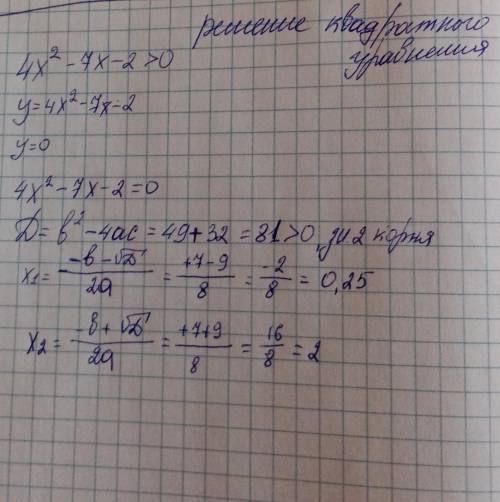 решение квадратного
уравнения
4x² - 7x - 2 > 0
y = 4x² - 7x - 2
y = 0
4x² - 7x - 2 = 0
D = b² - 4ac = 49 + 32 = 81 > 0, 2 корня
x1 = (-b - √D)/2a = (+7 - 9)/8 = -2/8 = 0,25
x2 = (-b + √D)/2a = (+7 + 9)/8 = 16/8 = 2